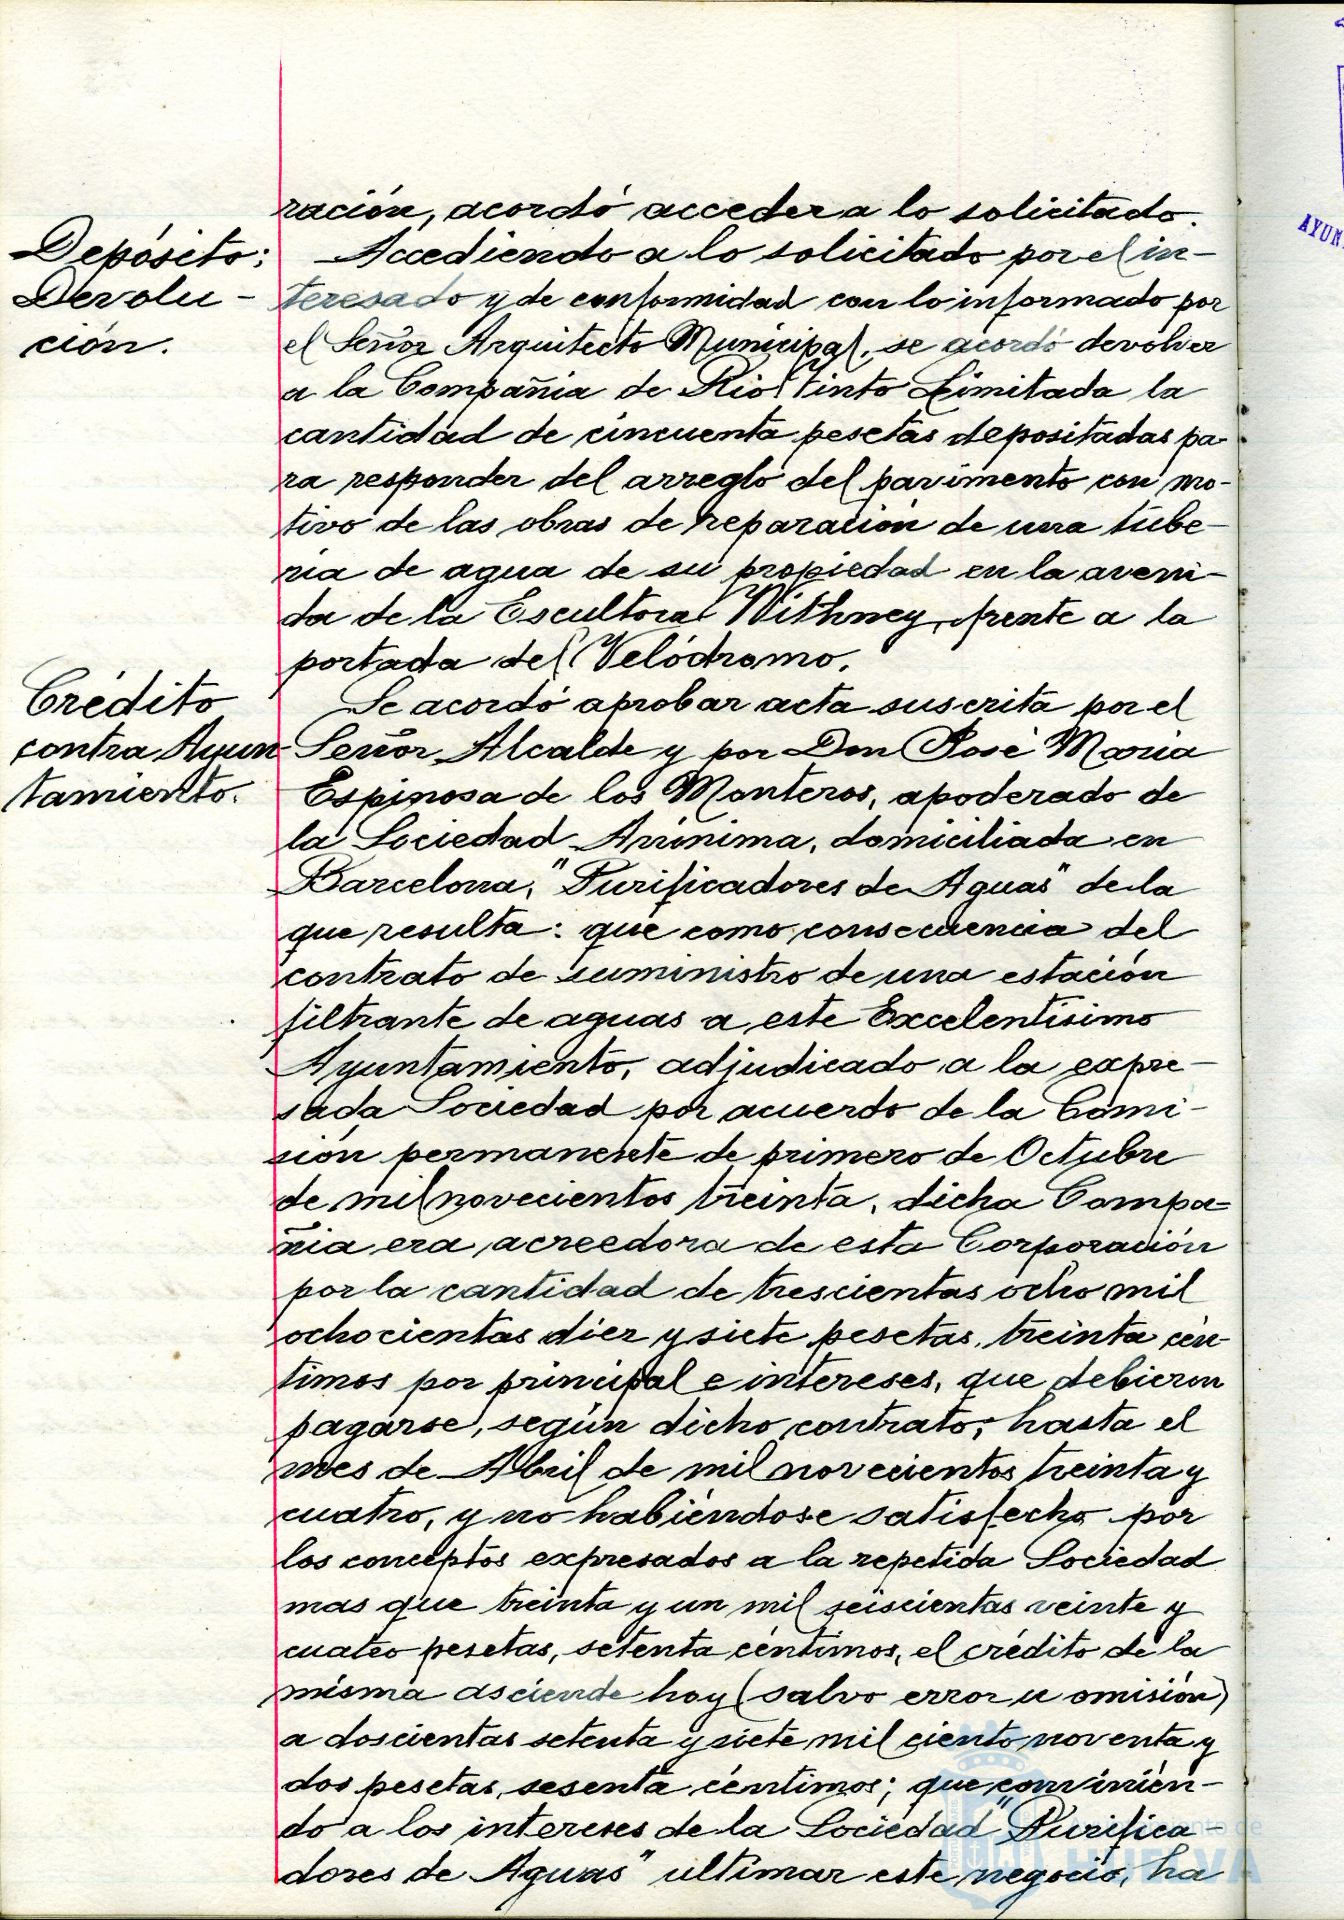 ración, acordó acceder a lo solicitado.
Depósito:
Devolu-
ción.
Accediendo a lo solicitado por el in-
teresado y de conformidad con lo informado por
el Señor Arquitecto Municipal, se acordó devolver
a la Compañia de Rio Tinto Limitada la
cantidad de cincuenta pesetas depositadas pa-
ra responder del arreglo del pavimento con mo-
tivo de las obras de reparación de una tube-
ria de agua de su propiedad en la aveni-
da de la Escultora Withney, frente a la
portada del Velódromo.
Crédito
contra Ayun-
tamiento.
Se acordó aprobar acta suscrita por el
Señor Alcalde y por Don José Maria
Espinosa de los Monteros, apoderado de
la Sociedad Anónima, domiciliada en
Barcelona, "Purificadores de Aguas" de la
que resulta: que como consecuencia del
contrato de suministro de una estación
filtrante de aguas a este Excelentísimo
Ayuntamiento, adjudicado a la expre-
sada Sociedad por acuerdo de la Comi-
sión permanente de primero de Octubre
de mil novecientos treinta, dicha Compa=
ñia era acreedora de esta Corporación
por la cantidad de trescientas ocho mil
ochocientas diez y siete pesetas, treinta cén-
timos por principal e intereses, que debieron
pagarse, según dicho contrato, hasta el
mes de Abril de mil novecientos treinta y
cuatro, y no habiéndose satisfecho por
los conceptos expresados a la repetida Sociedad
mas que treinta y un mil seiscientas veinte y
cuatro pesetas, setenta céntimos, el crédito de la
misma asciende hoy (salvo error u omisión)
a doscientas setenta y siete mil ciento noventa y
dos pesetas, sesenta céntimos; que convinien-
do a los intereses de la Sociedad "Purifica
dores de Aguas" ultimar este negocio, ha
AYUN
HUELVA